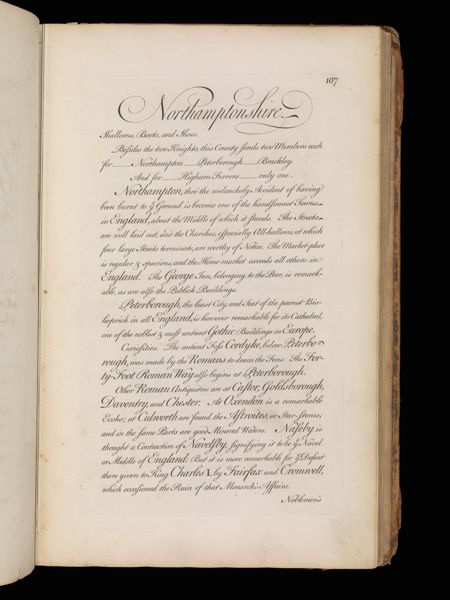 107
Northamptonshire
Shalloons, Boots, and Shoes.
Besides the two Knights, this County sends two Members each
for ........ Northampton ..... Peterborough ..... Brackley.
And for ...... Higham Ferrers ........ only one.
Northampton, thro' the melancholy Accident of having
been burnt to ye Ground is become one of the handsomest Towns
in England, about the Middle of which it stands. The Streets
are well laid out, and the Churches, especially All-hallows, at which
four large Streets terminate, are worthy of Notice. The Market-place
is regular & spacious, and the Horse-market exceeds all others in
England. The George Inn, belonging to the Poor, is remark-
able, as are also the Publick Buildings.
Peterborough, the least City, and Seat of the poorest Bis-
hoprick in all England, is however remarkable for its Cathedral,
one of the noblest & most antient Gothic Buildings in Europe.
Curiosities. The antient Foss Cordyke, below Peterbo-
rough, was made by the Romans to drain the Fens: The For-
ty-Foot Roman Way also begins at Peterborough.
Other Roman Antiquities are at Castor, Goldsborough,
Daventry, and Chester. At Oxendon is a remarkable
Eccho; at Culworth are found the Astroites, or Star-stones;
and in the same Parts are good Mineral Waters. Naseby is
thought a Contraction of Navesby, signifying it to be ye Navel
or Middle of England: But it is more remarkable for ye Defeat
there given to King Charles I. by Fairfax and Cromwell,
which occasioned the Ruin of that Monarch's Affairs.
Noblemen's